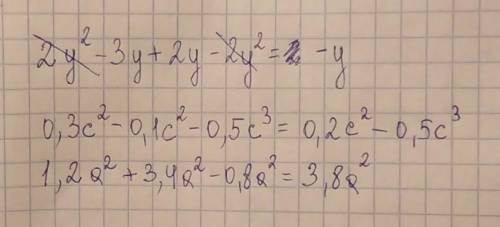 2y² - 3y + 2y - 2y² = -y
0,3c² - 0,1c² - 0,5c³ = 0,2c² - 0,5c³
1,2a² + 3,4a² - 0,8a² = 3,8a²